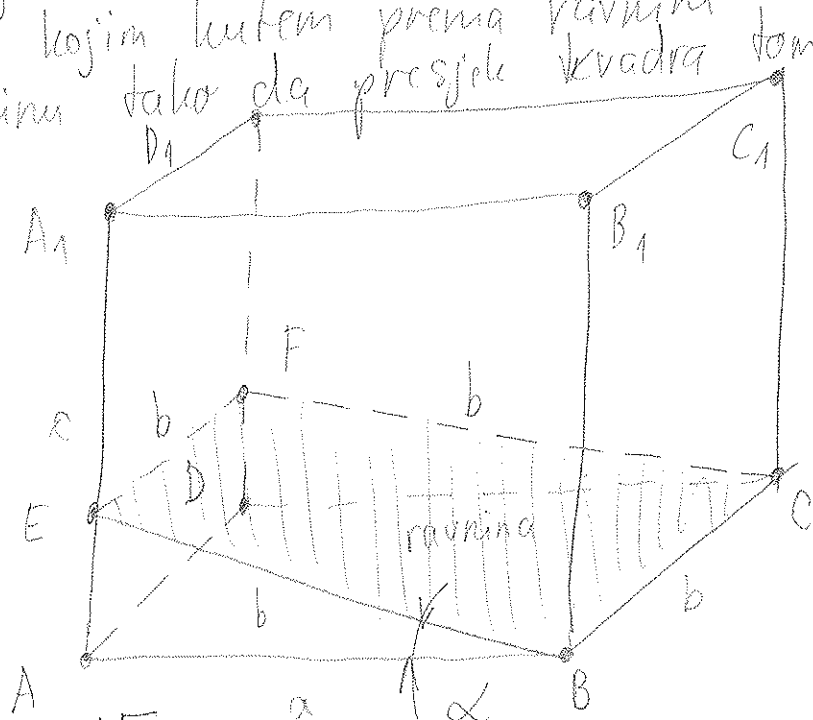 kojim kutem prema ravnini
tako da presjek kvadra tom
D₁
C₁
A₁
B₁
F
b
b
c
D
E
ravnina
C
b
b
A
a
α
B